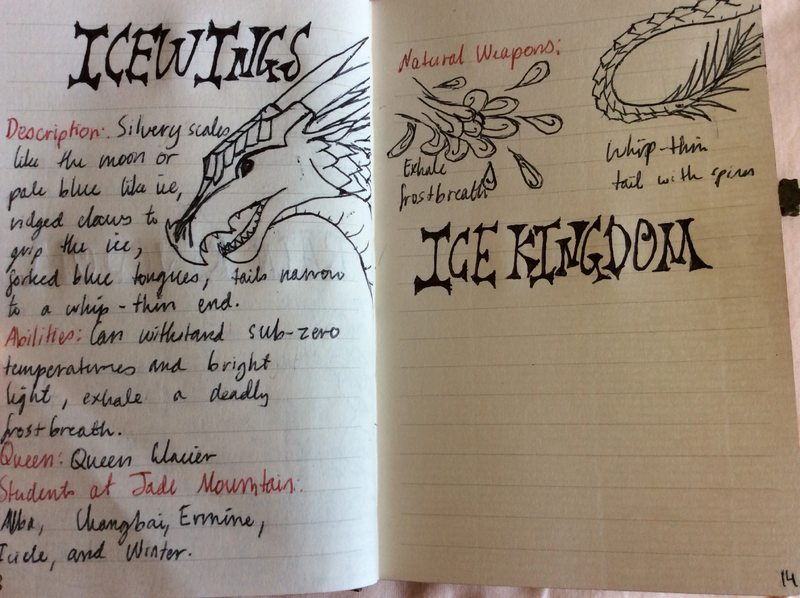 ICEWINGS
Description: Silvery scales
like the moon or
pale blue like ice,
ridged claws to
grip the ice,
forked blue tongues, tails narrow
to a whip-thin end.
Abilities: Can withstand sub-zero
temperatures and bright
light, exhale a deadly
frostbreath.
Queen: Queen Glacier
Students at Jade Mountain:
Alba, Changbai, Ermine,
Icicle, and Winter.
Natural Weapons:
Exhale
frostbreath
Whip-thin
tail with spines
ICE KINGDOM
14